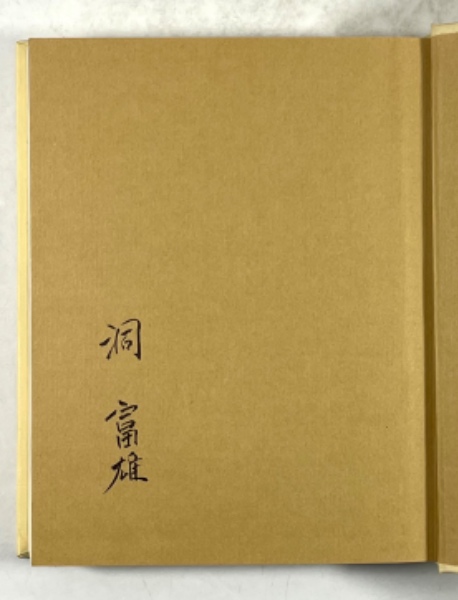 洞 富雄